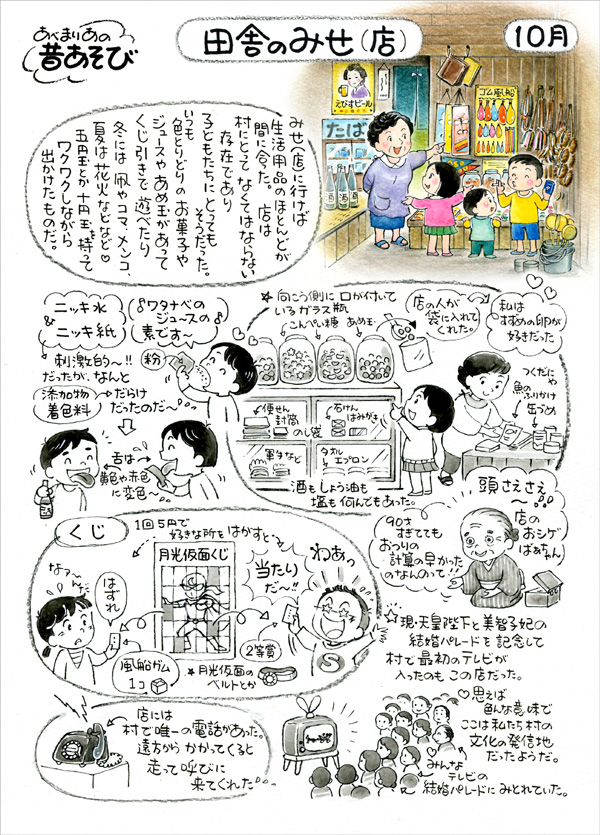 あべまりあの
昔あそび
田舎のみせ(店)
10月
えびすビール
たばこ
酒
酒
酒
ゴム風船
みせへ(店)に行けば
生活用品のほとんどが
間に合った。店は
村にとってなくてはならない
存在であり
子どもたちにとっても
そうだった。
いつも
色とりどりのお菓子や
ジュースやあめ玉があって
くじ引きで遊べたり
冬には凧やコマ、メンコ、
夏は花火などなど♡
五円玉とか十円玉を持って
ワクワクしながら
出かけたものだ。
ニッキ水
ニッキ紙
刺激的〜!!
だったが、なんと
添加物
着色料
だらけ
だったのだ〜
舌は
黄色や赤色
に変色〜
♪ワタナベの
ジュースの
素です〜♪
粉
☆向こう側に口が付いて
いるガラス瓶
こんぺい糖 あめ玉
店の人が
袋に入れて
くれた。
私は
すずめの卵が
好きだった
つくだにや
魚の
ふりかけ
缶づめ
便せん
封筒
のし袋
石けん
はみがき
軍手など
タオル
エプロン
酒もしょう油も
塩も何んでもあった。
頭さえさえ
店の
おシゲ
ばあちゃん
90才
すぎてても
おつりの
計算の早かった
のなんのって!!
くじ
1回5円で
好きな所をはがすと
月光仮面くじ
なァ〜んだ
はずれ
風船ガム
1コ
当たり
だ〜!!
わあっ
S
2等賞
★月光仮面の
ベルトとか
☆現・天皇陛下と美智子妃の
結婚パレードを記念して
村で最初のテレビが
入ったのもこの店だった。
♡思えば
色んな意味で
ここは私たち村の
文化の発信地
だったようだ。
店には
村で唯一の電話があった。
遠方からかかってくると
走って呼びに
来てくれた
みんな
テレビの
結婚パレードにみとれていた。